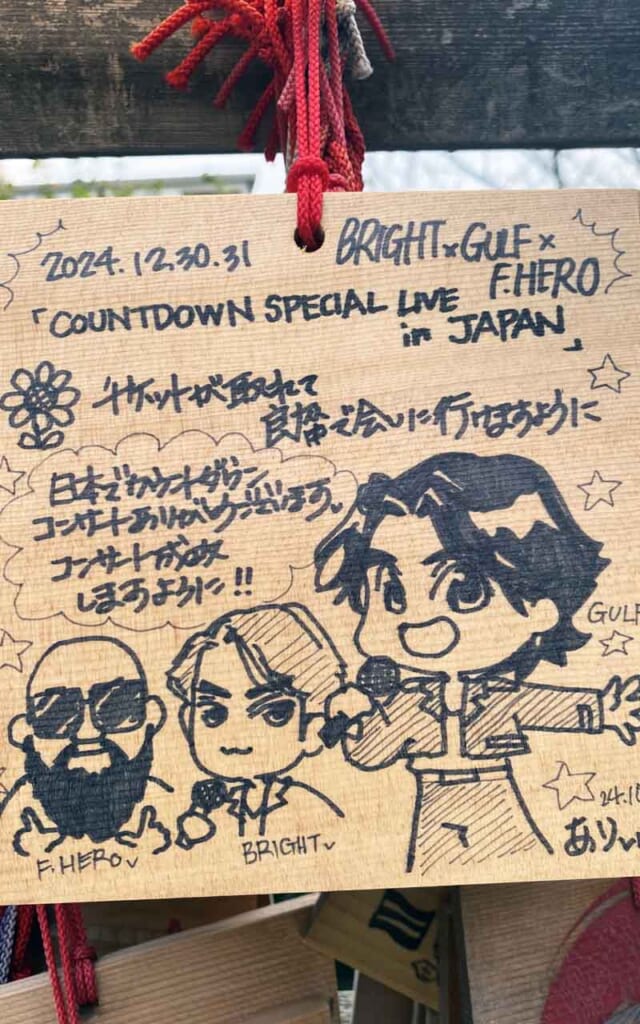 2024.12.30.31
BRIGHT×GULF×
F.HERO
「COUNTDOWN SPECIAL LIVE
in JAPAN」
チケットが取れて
良席で会いに行けますように
日本でカウントダウン
コンサートありがとうございます
コンサートが成功
しますように!!
GULF
F.HERO
BRIGHT
24.10
あり